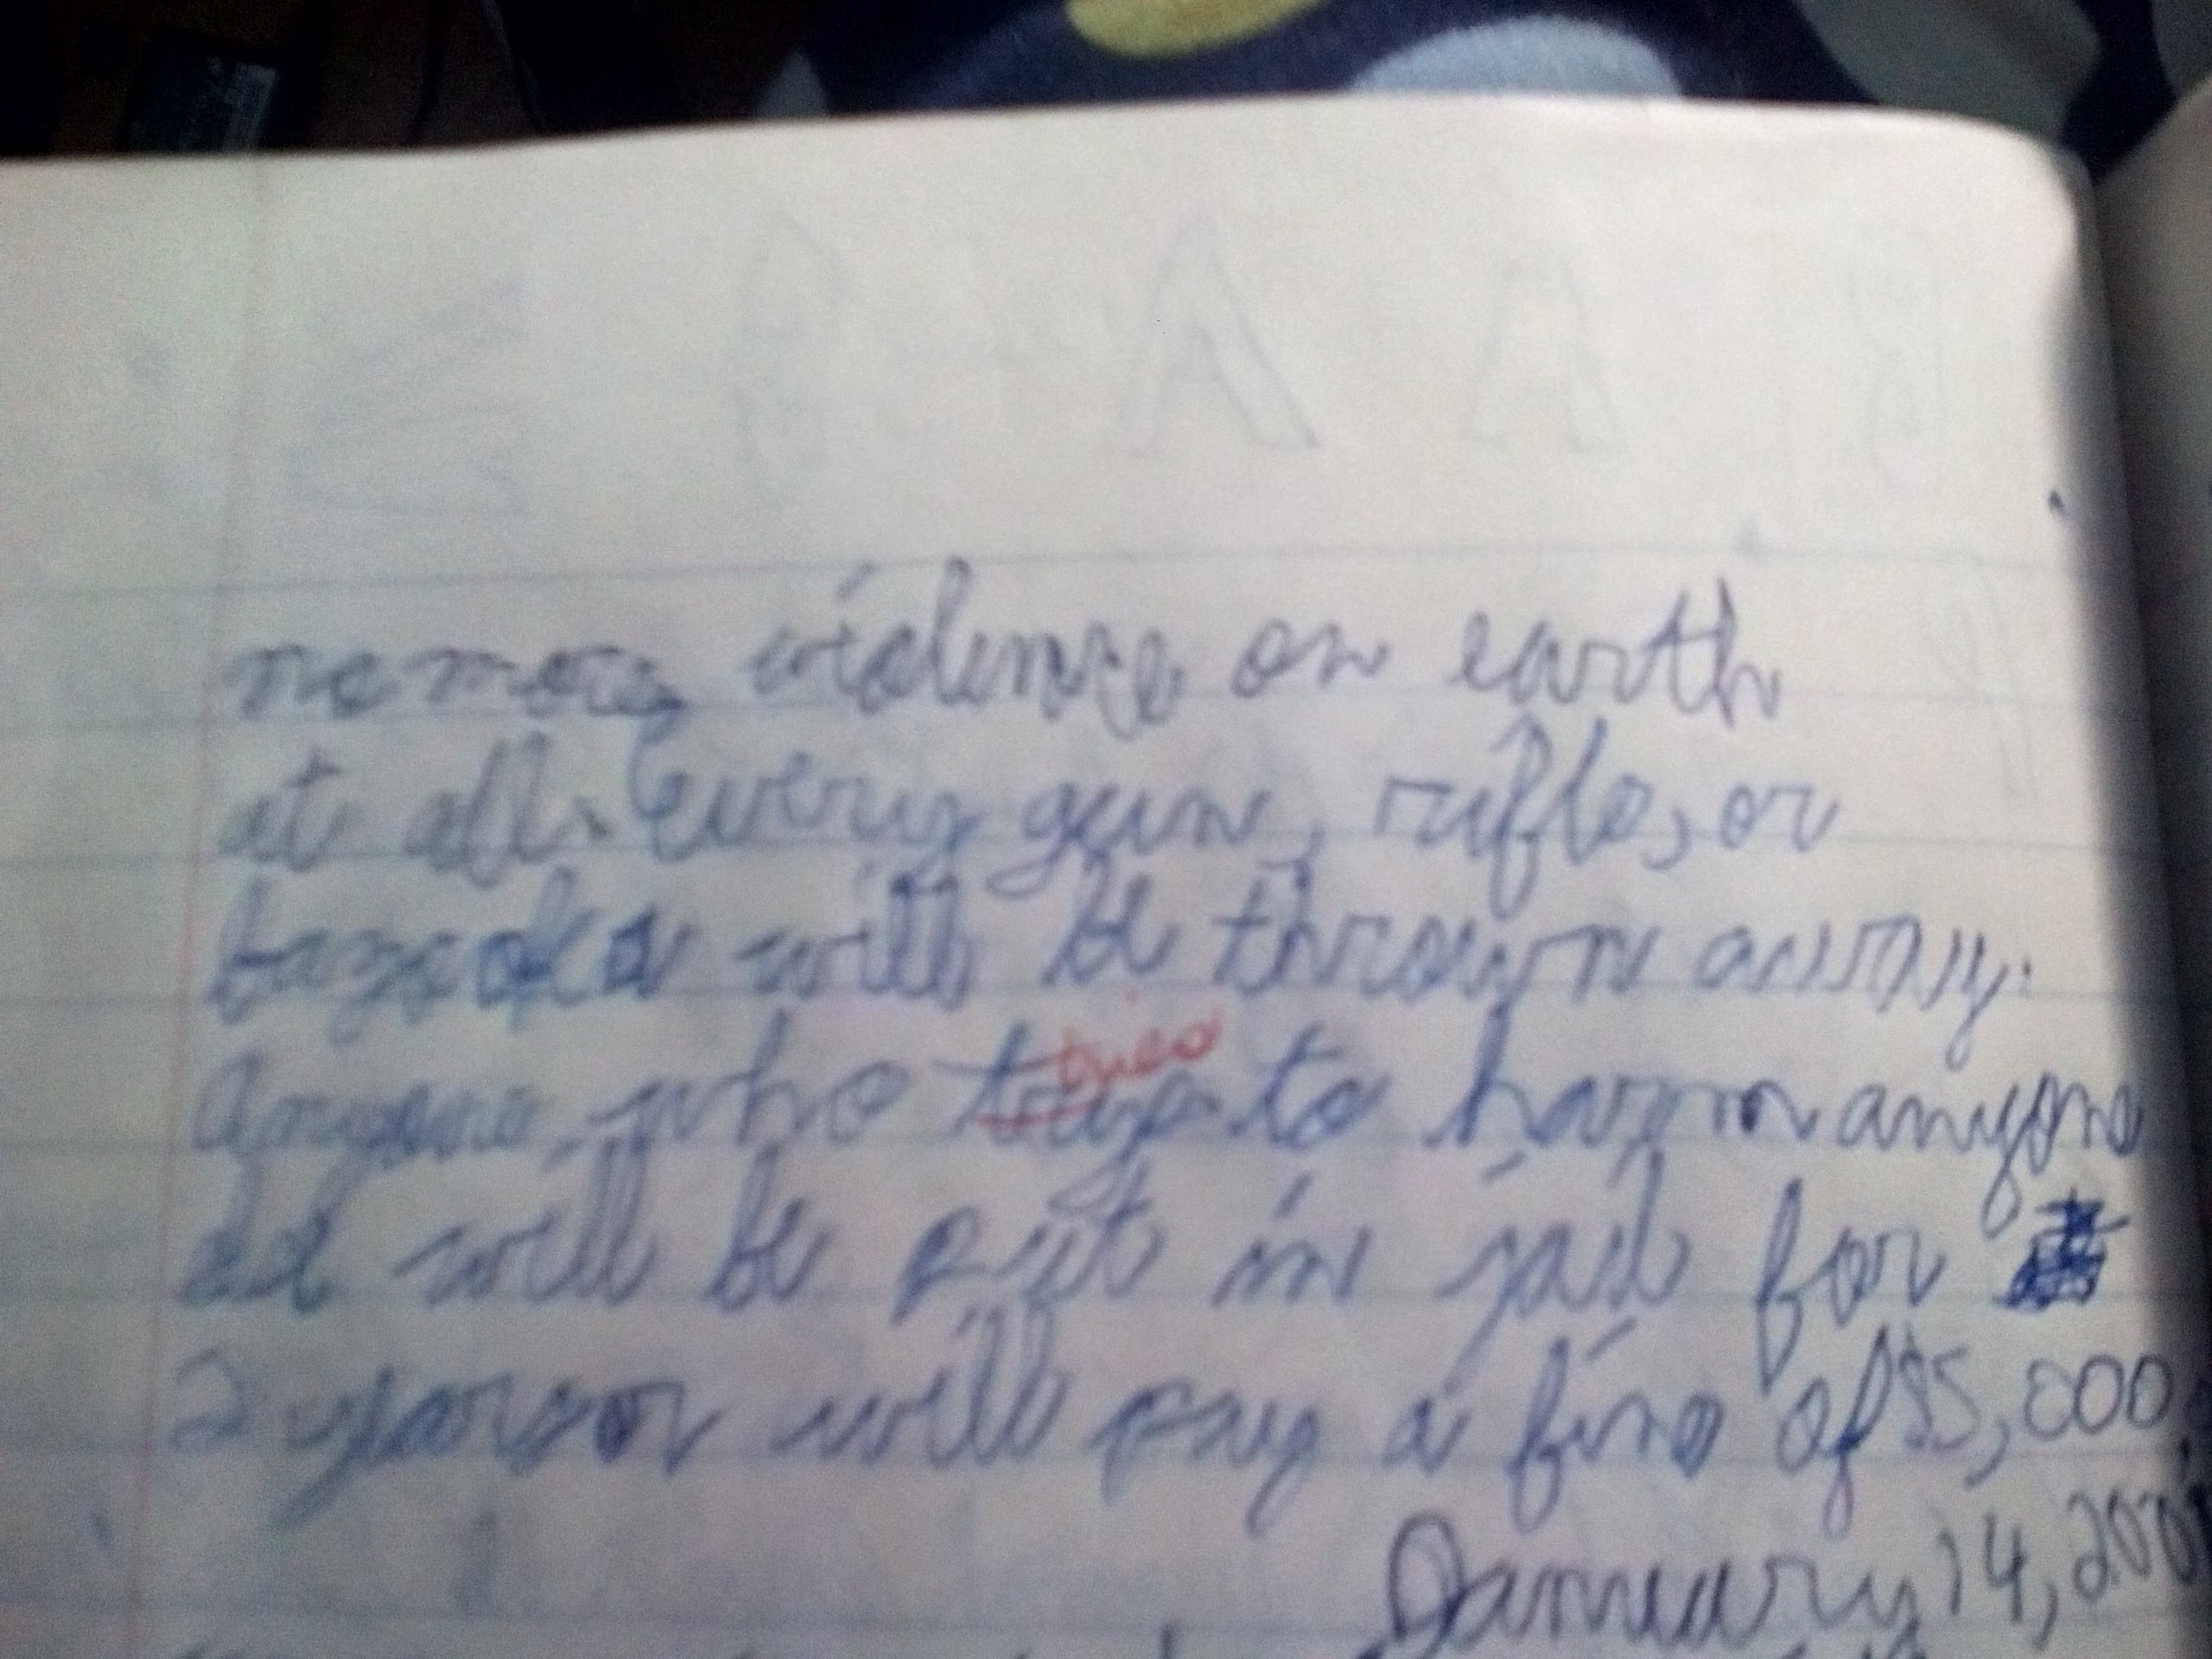 no more violence on earth
at all. Every gun, rifle, or
bazooka will be thrown away.
tries
Anyone who trys to harm anyone
will be put in jail for
2 yarsor will pay a fine of $5,000
January 14, 200